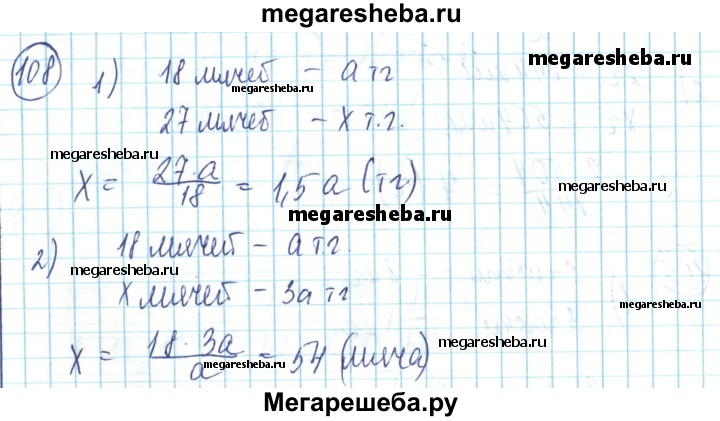 megaresheba.ru
108 1) 18 мячей - а тг
megaresheba.ru
megaresheba.ru
27 мячей - х т.г.
megaresheba.ru
х = 27·а/18 = 1,5 а (тг)
megaresheba.ru
megaresheba.ru
2) 18 мячей - а т.г.
megaresheba.ru
х мячей - 3а тг
megaresheba.ru
х = 18·3а/а = 54 (мяча)
megaresheba.ru
megaresheba.ru
Мегарешеба.ру